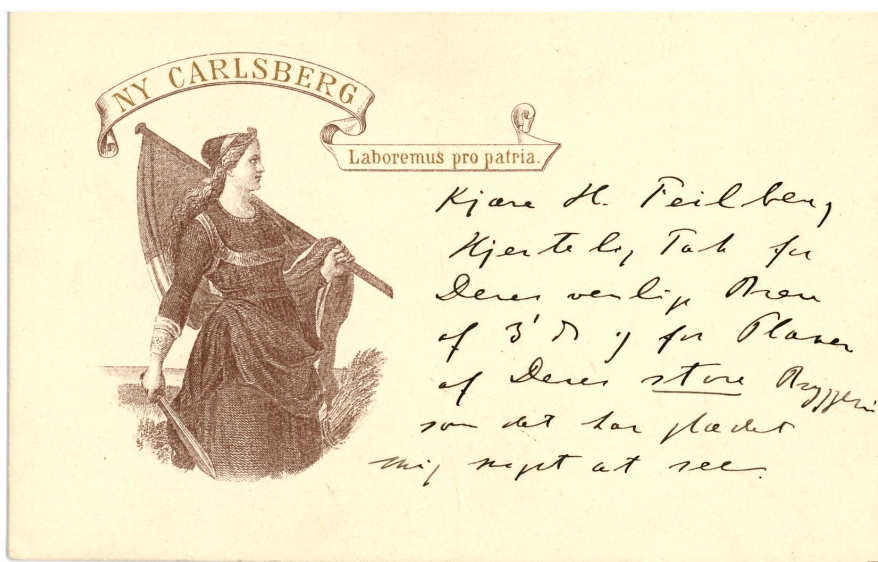 NY CARLSBERG
Laboremus pro patria.
Kjære H. Feilberg
Hjertelig Tak for
Deres venlige Brev
af 3' D og for Planer
af Deres store Bryggeri
som det har glædet
mig meget at see.